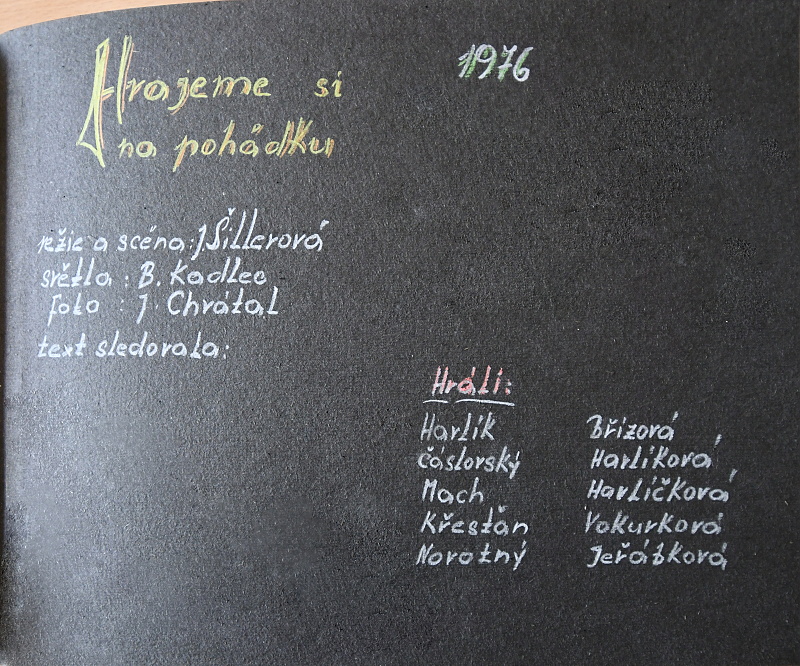 Hrajeme si
na pohádku
1976
režie a scéna: J Šillerová
světla : B. Kadlec
foto : J. Chvátal
text sledovala:
Hráli:
Havlík Břízová
Čáslavský Havlíková
Mach Havlíčková
Křesťan Vokurková
Novotný Jeřábková